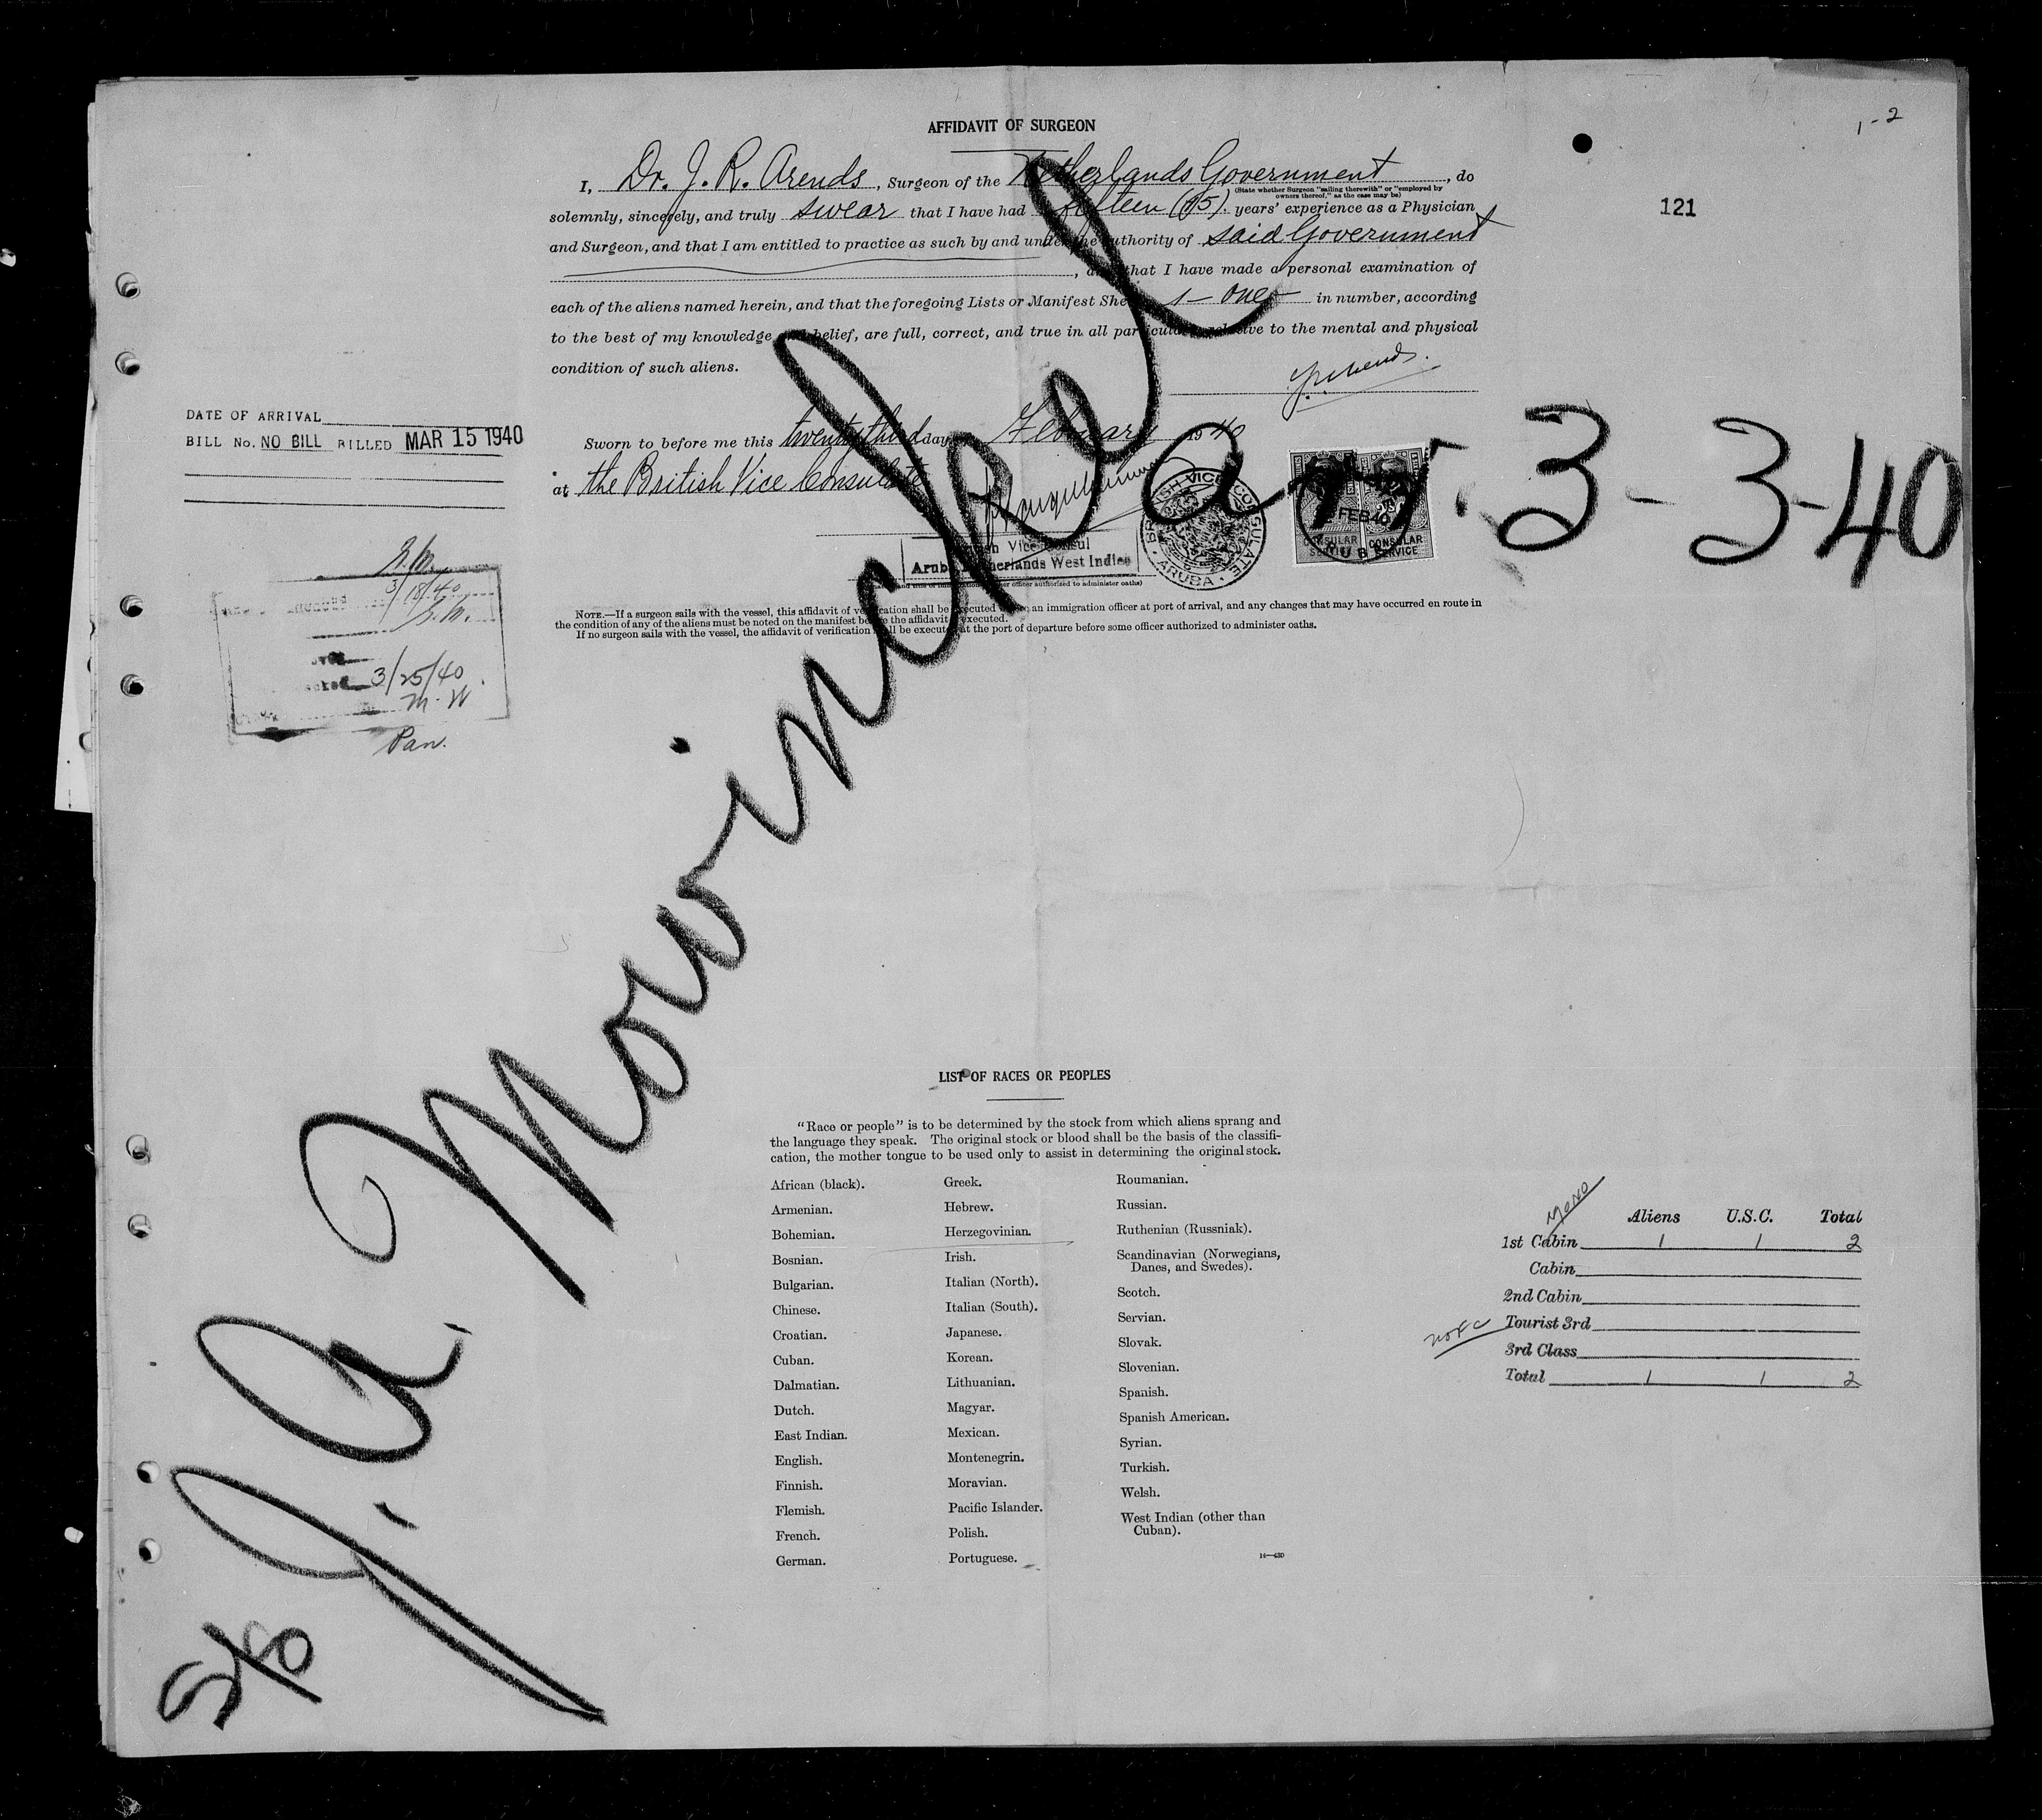 1-2
121
AFFIDAVIT OF SURGEON
I, Dr. J. R. Arends, Surgeon of the Netherlands Government, do
(State whether Surgeon "sailing therewith" or "employed by owners thereof," as the case may be)
solemnly, sincerely, and truly swear that I have had fifteen (15). years' experience as a Physician
and Surgeon, and that I am entitled to practice as such by and under the authority of said Government
, and that I have made a personal examination of
each of the aliens named herein, and that the foregoing Lists or Manifest Sheets 1 - one - in number, according
to the best of my knowledge and belief, are full, correct, and true in all particulars relative to the mental and physical
condition of such aliens.
J.R. Arends.
DATE OF ARRIVAL
BILL No. NO BILL BILLED MAR 15 1940
Sworn to before me this twenty third day of February 1940
at the British Vice Consulate
British Vice Consul
Aruba Netherlands West Indies
officer authorized to administer oaths)
BRITISH VICE CONSULATE
ARUBA
FEB 40
ARUBA
CONSULAR SERVICE
CONSULAR SERVICE
arr. 3-3-40
J. A. Mowinckel
3/18/40
3/25/40
M. W
Pan.
NOTE.—If a surgeon sails with the vessel, this affidavit of verification shall be executed before an immigration officer at port of arrival, and any changes that may have occurred en route in
the condition of any of the aliens must be noted on the manifest before the affidavit is executed.
If no surgeon sails with the vessel, the affidavit of verification shall be executed at the port of departure before some officer authorized to administer oaths.
LIST OF RACES OR PEOPLES
"Race or people" is to be determined by the stock from which aliens sprang and
the language they speak. The original stock or blood shall be the basis of the classifi-
cation, the mother tongue to be used only to assist in determining the original stock.
African (black).
Armenian.
Bohemian.
Bosnian.
Bulgarian.
Chinese.
Croatian.
Cuban.
Dalmatian.
Dutch.
East Indian.
English.
Finnish.
Flemish.
French.
German.
Greek.
Hebrew.
Herzegovinian.
Irish.
Italian (North).
Italian (South).
Japanese.
Korean.
Lithuanian.
Magyar.
Mexican.
Montenegrin.
Moravian.
Pacific Islander.
Polish.
Portuguese.
Roumanian.
Russian.
Ruthenian (Russniak).
Scandinavian (Norwegians,
Danes, and Swedes).
Scotch.
Servian.
Slovak.
Slovenian.
Spanish.
Spanish American.
Syrian.
Turkish.
Welsh.
West Indian (other than
Cuban).
14—430
Aliens U.S.C. Total
1st Cabin 1 1 2
Cabin
2nd Cabin
Tourist 3rd
3rd Class
Total 1 1 2